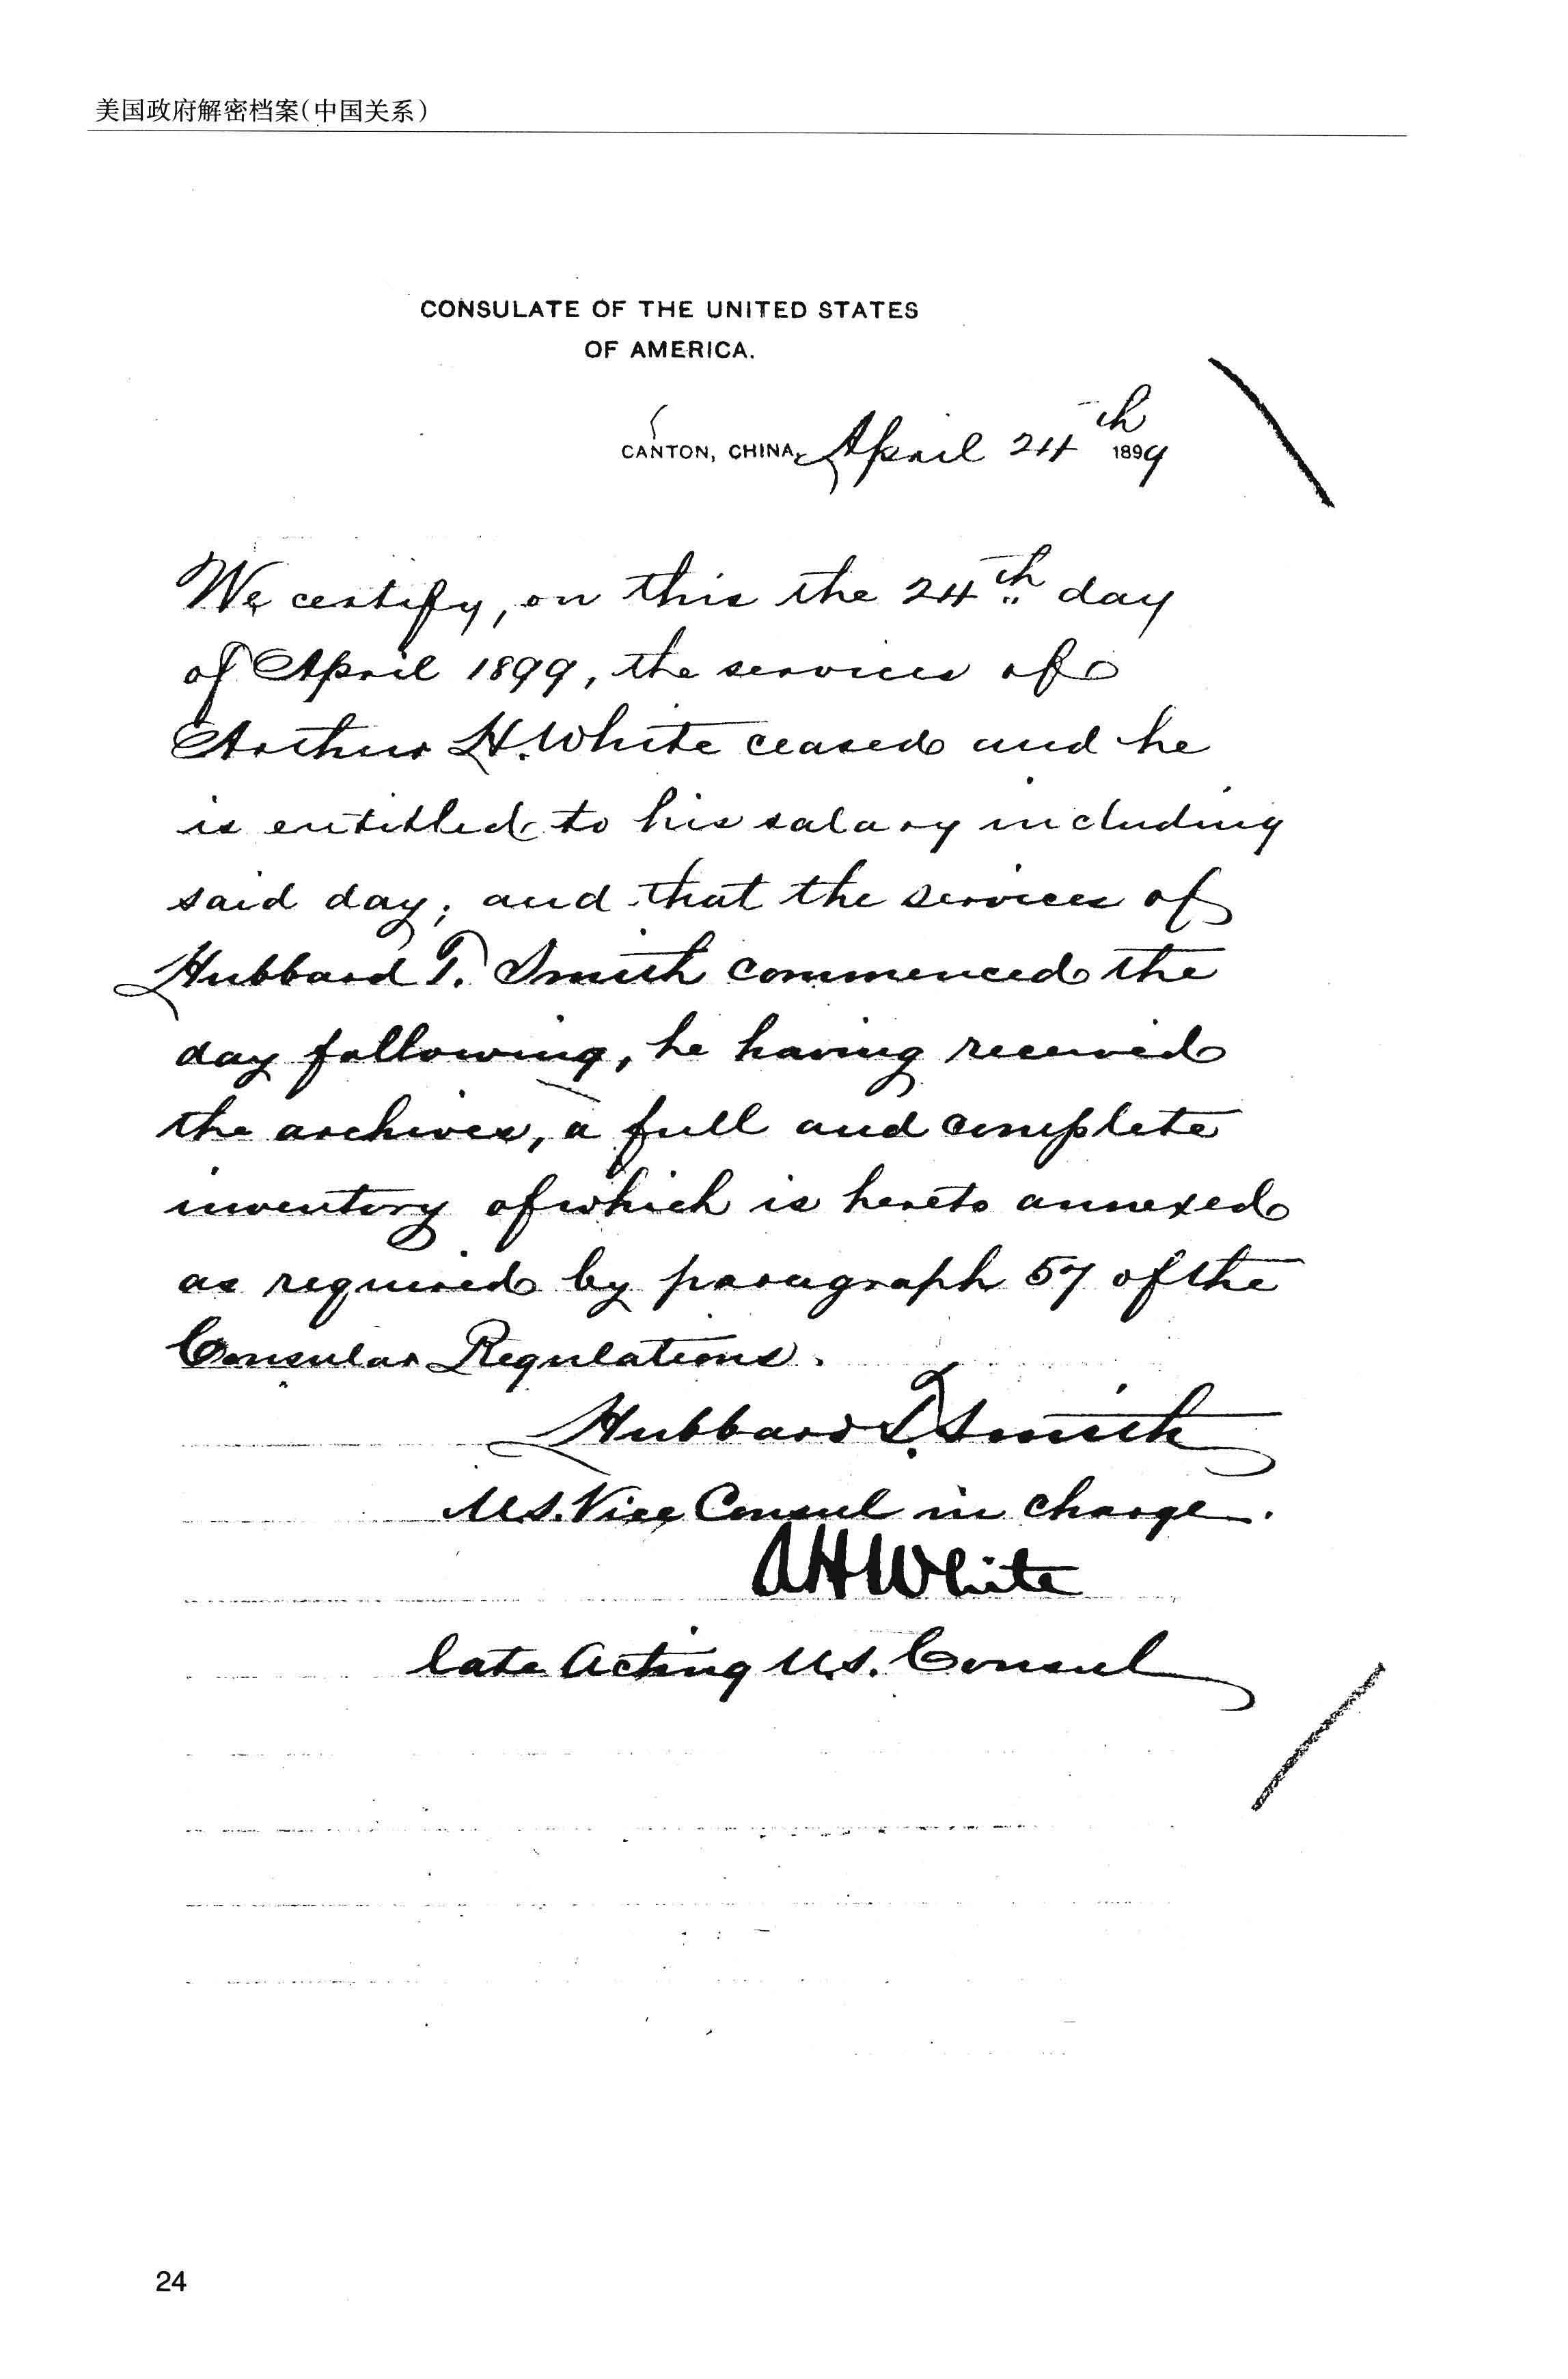 美国政府解密档案(中国关系)
CONSULATE OF THE UNITED STATES
OF AMERICA.
CANTON, CHINA, April 24th 1899
We certify, on this the 24th day
of April 1899, the services of
Arthur H. White ceased and he
is entitled to his salary including
said day; and that the services of
Hubbard T. Smith commenced the
day following, he having received
the archives, a full and complete
inventory of which is hereto annexed
as required by paragraph 57 of the
Consular Regulations.
Hubbard T. Smith
U.S. Vice Consul in charge.
A H White
late Acting U.S. Consul
24